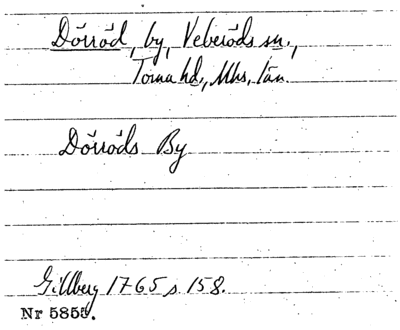 Dörröd, by, Veberöds sn.,
Torna hd., Mhs. län.
Dörröds By
Gillberg 1765 s 158.
Nr 5855.